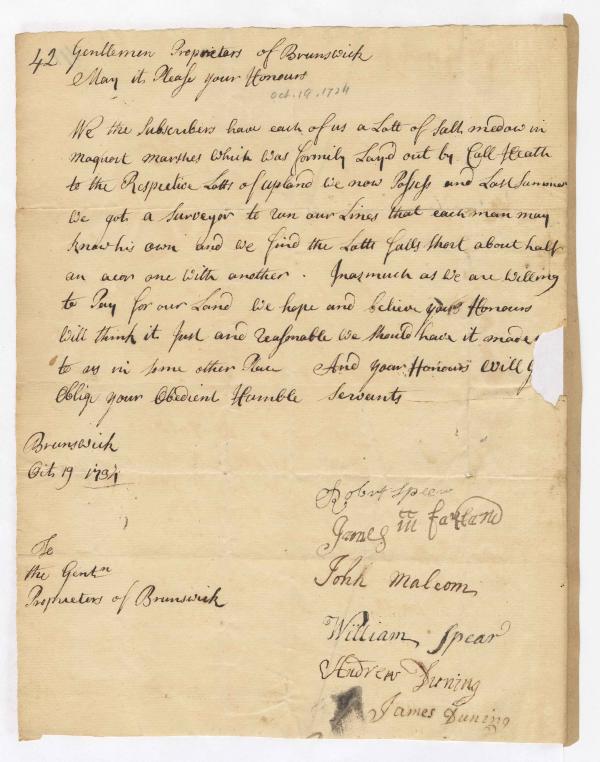 42 Gentlemen Proprieters of Brunswick
May it Please your Honours
Oct. 19. 1734
We the Subscribers have each of us a Lott of Salt medow in
maquoit marshes which was formily Layd out by Call Heath
to the Respective Lotts of upland we now Possess and Last Summer
we got a Surveyor to run our Lines that each man may
know his own and we find the Lotts falls short about half
an acor one with another. Inasmuch as we are willing
to Pay for our Land we hope and believe your Honours
will think it Just and reassnable we should have it made
to us in some other Place And your Honours will
Oblige your Obedient Humble Servants
Brunswick
Oct 19 1734
To
the Gentn
Proprieters of Brunswick
Robert Spear
James mc farland
John malcom
William Spear
Andrew Duning
James Duning